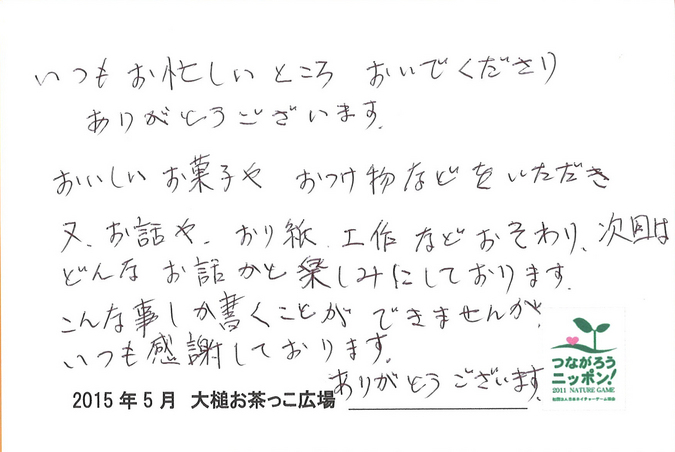 いつもお忙しいところ おいでくださり
ありがとうございます。
おいしいお菓子や おつけ物などをいただき
又、お話や、おり紙、工作などおそわり、次回は
どんなお話かと楽しみにしております。
こんな事しか書くことができませんが、
いつも感謝しております。
ありがとうございます。
2015年5月 大槌お茶っこ広場
つながろう
ニッポン!
2011 NATURE GAME